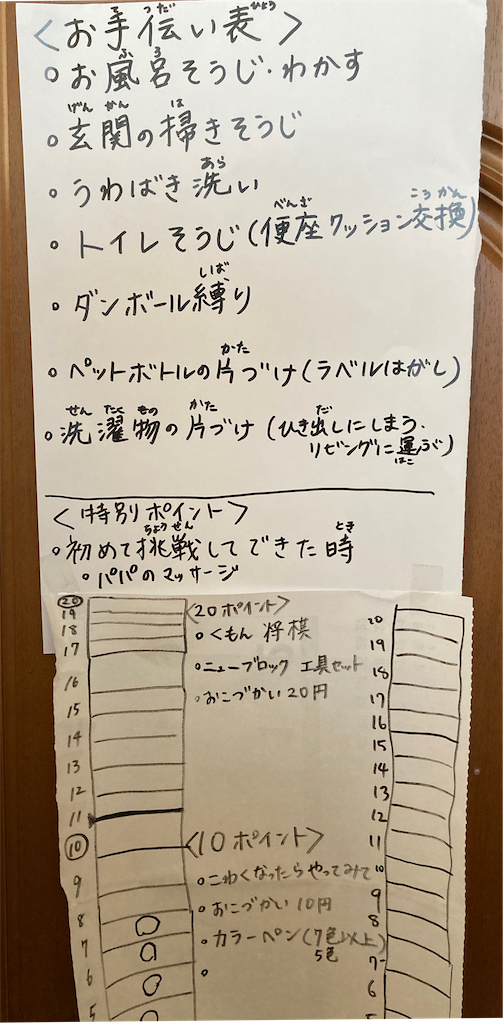 <お手伝い表>
てつだひょう
。お風呂そうじ・わかす
ふろ
。玄関の掃きそうじ
げんかんは
。うわばき洗い
あら
。トイレそうじ(便座クッション交換)
べんざこうかん
。ダンボール縛り
しば
。ペットボトルの片づけ(ラベルはがし)
かた
。洗濯物の片づけ(ひき出しにしまう・
せんたくものかただ
リビングに運ぶ)
はこ
<特別ポイント>
。初めて挑戦してできた時
ちょうせんとき
。パパのマッサージ
<20ポイント>
。くもん 将棋
。ニューブロック 工具セット
。おこづかい20円
<10ポイント>
。こわくなったらやってみて
。おこづかい10円
。カラーペン(7色以上)
5色
。
20
19
18
17
16
15
14
13
12
11
10
9
8
7
6
5
20
19
18
17
16
15
14
13
12
11
10
9
8
7
6